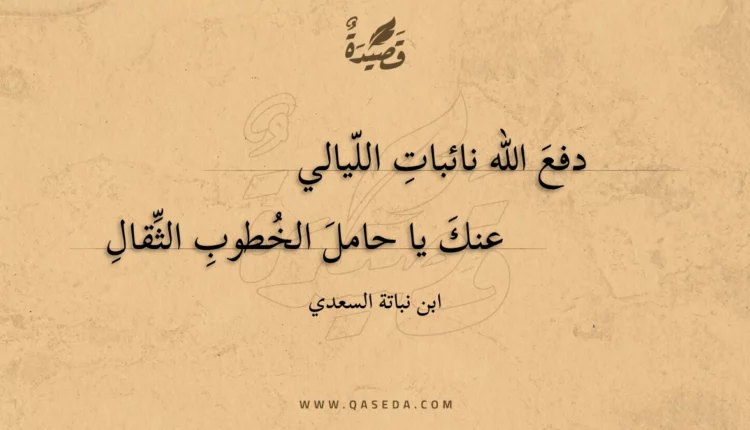 قَصِيدَةٌ
دفعَ الله نائباتِ اللّيالي
عنكَ يا حاملَ الخُطوبِ الثِّقالِ
ابن نباتة السعدي
WWW.QASEDA.COM